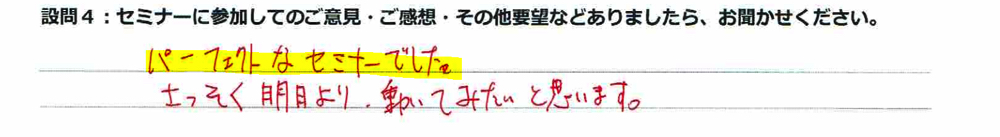 設問４：セミナーに参加してのご意見・ご感想・その他要望などありましたら、お聞かせください。
パーフェクトなセミナーでした。
さっそく明日より、動いてみたいと思います。